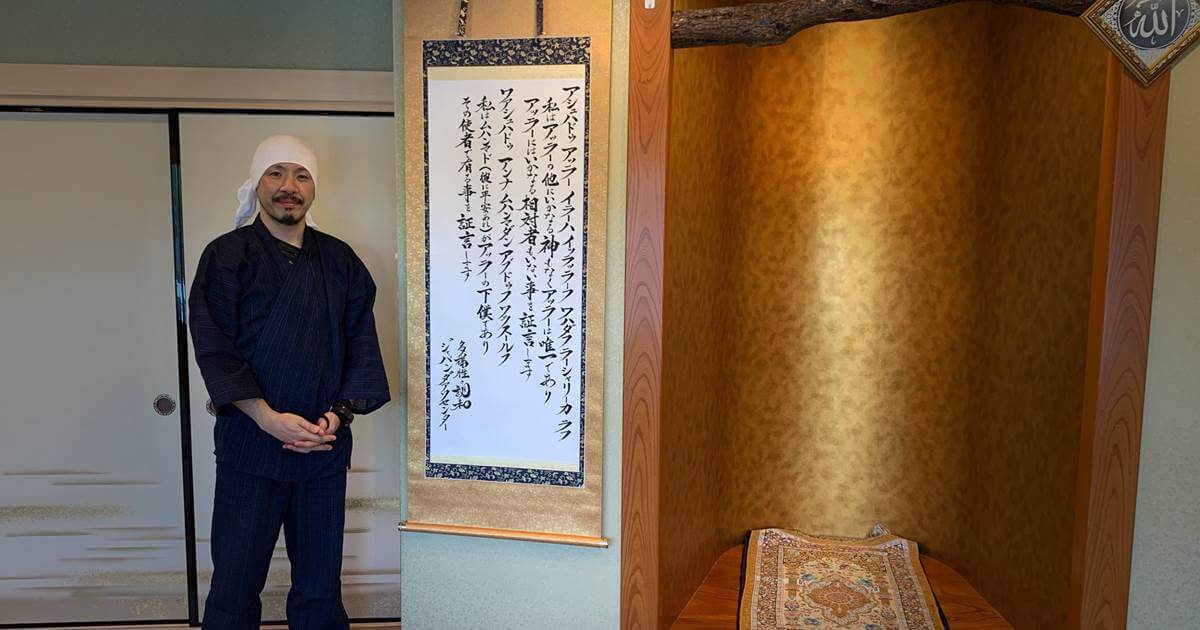 アシュハドゥ アッラー イラーハ イッラッラーフ ワハダフ ラーシャリーカ ラフ
私はアッラーの他にいかなる神もなくアッラーは唯一であり
アッラーにはいかなる相対者もいない事を証言します
ワアシュハドゥ アンナ ムハンマダン アブドゥフ ワラスールフ
私はムハンマド(彼に平安あれ)がアッラーの下僕であり
その使者で有る事を証言します
多様性の調和
ジャパンダアワセンター
الله